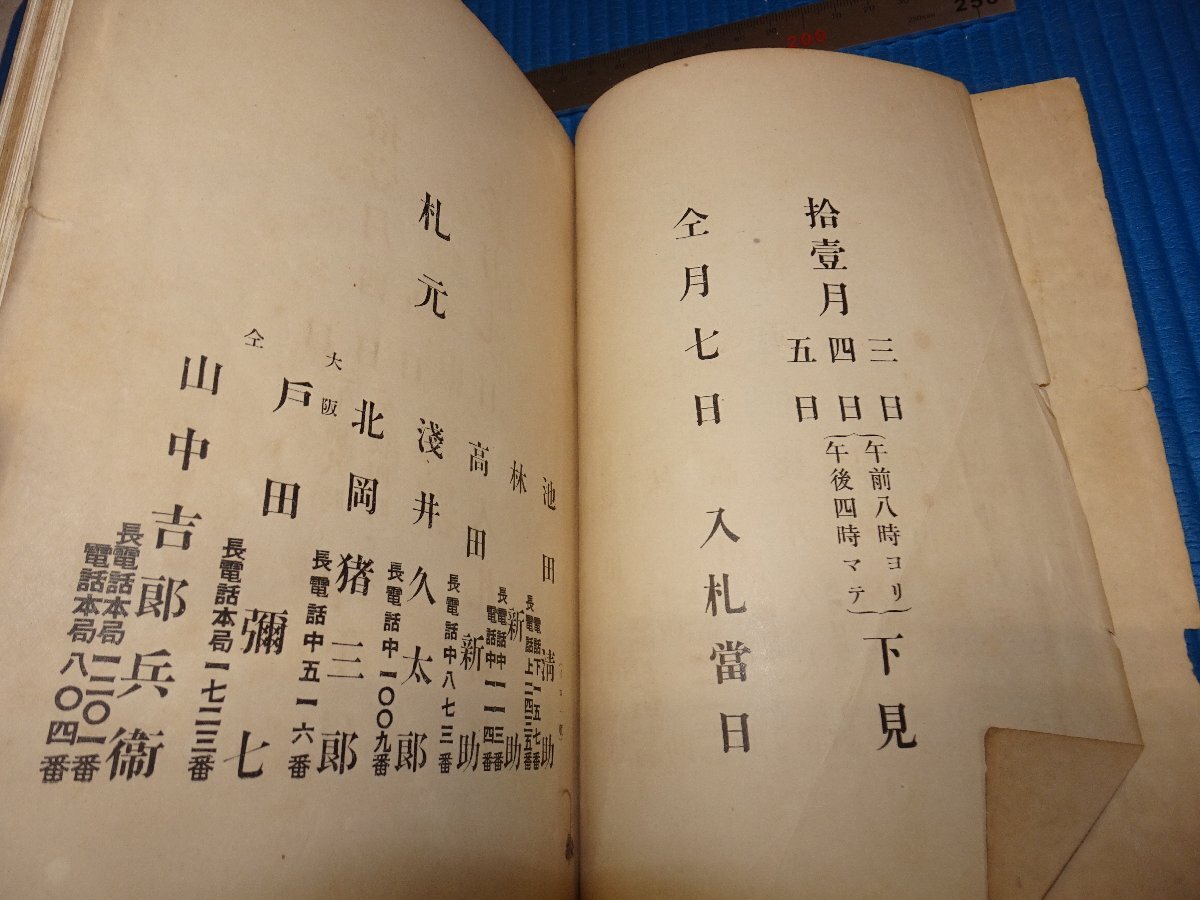 拾壹月
三日
四日
五日
午前八時ヨリ
午後四時マテ
下見
仝月七日 入札當日
札元
池田清助
電話下一五七番
長電話上二四二五番
林新助
長電話中一一三番
電話中一一四番
高田新助
長電話中八七三番
淺井久太郎
長電話中一〇〇九番
大阪
北岡猪三郎
長電話中五一六番
仝
戶田彌七
長電話本局一七二三番
山中吉郎兵衞
長電話本局一二〇一番
電話本局八〇四番
200
250